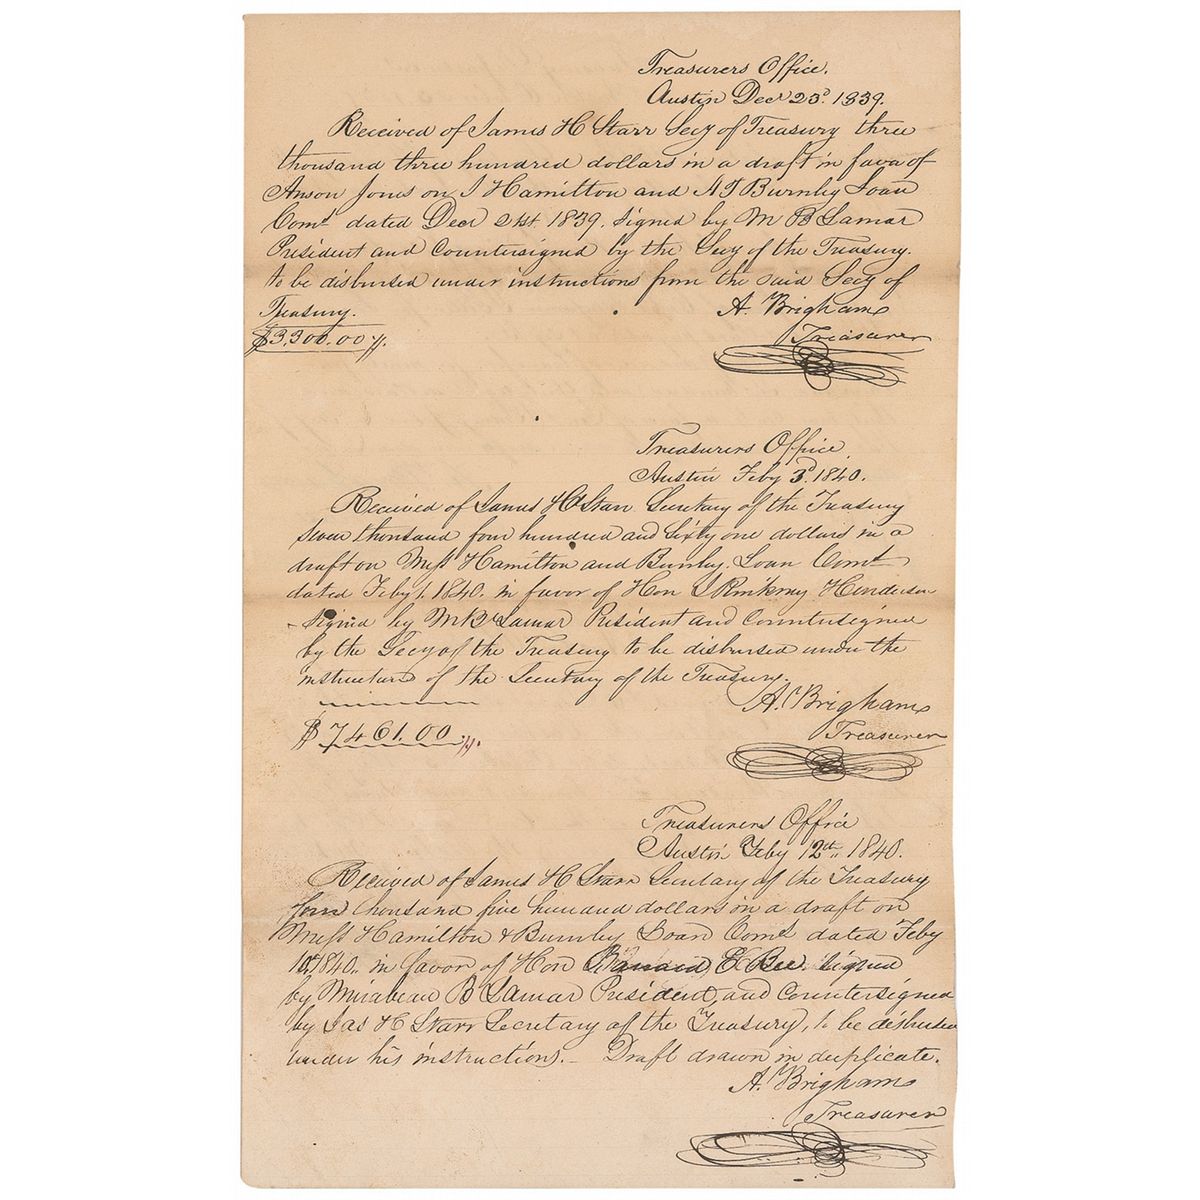 Treasurers Office.
Austin Decr 23d. 1839.
Received of James H Starr Secy of Treasury three
thousand three hundred dollars in a draft in fava of
Anson Jones on J Hamilton and A T Burnley Loan
Comt dated Decr 21st. 1839. signed by M B Lamar
President and Countersigned by the Secy of the Treasury.
to be disbursed under instructions from the said Secy of
Treasury.
A. Brigham
$3,300.00
Treasurer
Treasurers Office
Austin Feby 3d. 1840.
Received of James H Starr Secretary of the Treasury
seven thousand four hundred and sixty one dollars in a
draft on Mess Hamilton and Burnley. Loan Comt
dated Feby 1. 1840. in favor of Hon J Pinkney Henderson
signed by M B Lamar President and Countersigned
by the Secy of the Treasury to be disbursed under the
instructions of the Secretary of the Treasury.
A. Brigham
Treasurer
$7461.00
Treasurers Office
Austin Feby 12th, 1840.
Received of James H Starr Secretary of the Treasury
four thousand five hundred dollars in a draft on
Mess Hamilton & Burnley Loan Comt dated Feby
10th 1840. in favor of Hon Barnard E Bee. signed
by Mirabeau B Lamar President, and Countersigned
by Jas H Starr Secretary of the Treasury, to be disbursed
under his instructions. – Draft drawn in duplicate.
A. Brigham
Treasurer